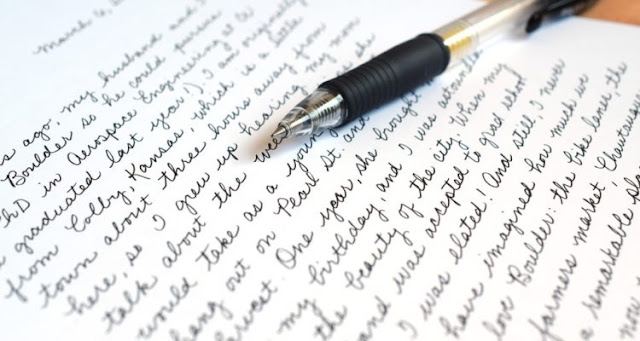 March 6, 2
s ago, my husband and I
Boulder so he could pursue
PhD in Aerospace Engineering at CU
graduated last year!) I am originally
from Colby, Kansas, which is a little
town about three hours away from
here, so I grew up hearing my mom
talk about the wee
would take as a young
hang out on Pearl St. and
One year, she brought
my birthday, and I was astounded
the beauty of the city. When my
and was accepted to grad school
I was elated! And still, I never
have imagined how much we
love Boulder: the bike lanes, the
farmers market, Chautauqua
a remarkable pla